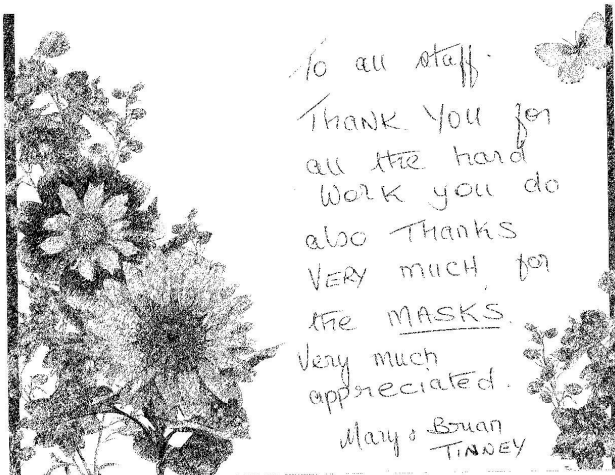 To all staff.
THANK YOU for
all the hard
WORK you do
also THANKS
VERY much for
the MASKS.
Very much
appreciated.
Mary & Bryan
TINNEY